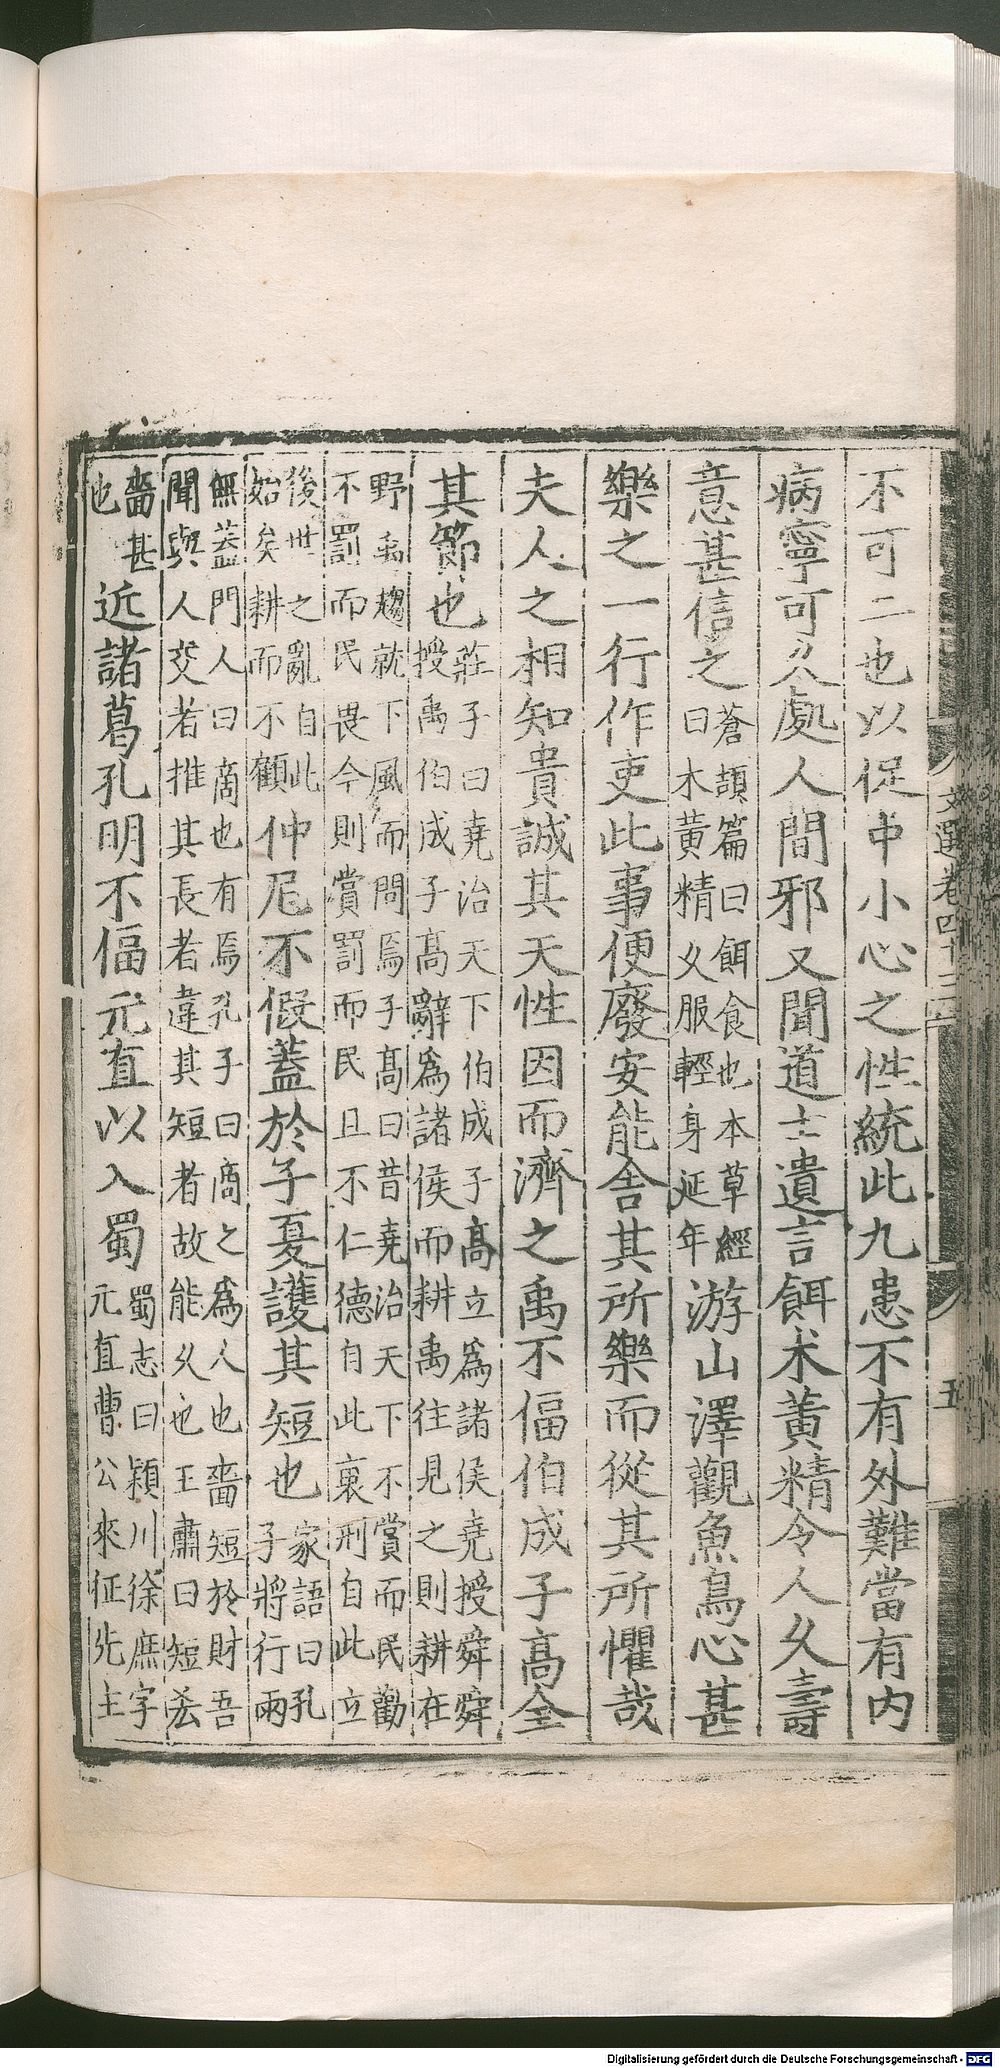 不可二也以促中小心之性統此九患不有外難當有內
病寧可久處人間邪又聞道士遺言餌朮黃精令人久壽
意甚信之
蒼頡篇曰餌食也本草經
曰木黃精久服輕身延年
游山澤觀魚鳥心甚
樂之一行作吏此事便廢安能舍其所樂而從其所懼哉
夫人之相知貴誠其天性因而濟之禹不偪伯成子髙全
其節也
莊子曰堯治天下伯成子髙立爲諸侯堯授舜舜
授禹伯成子髙辭爲諸侯而耕禹往見之則耕在
野禹趨就下風而問焉子髙曰昔堯治天下不賞而民勸
不罰而民畏今則賞罰而民且不仁德自此衰刑自此立
後世之亂自此
始矣耕而不顧
仲尼不假蓋於子夏護其短也
家語曰孔
子將行雨
無蓋門人曰商也有焉孔子曰商之爲人也嗇短於財吾
聞與人交者推其長者違其短者故能久也王肅曰短
嗇甚
也
近諸葛孔明不偪元直以入蜀
蜀志曰穎川徐庶字
元直曹公來征先主
文選卷四十三
五
Digitalisierung gefördert durch die Deutsche Forschungsgemeinschaft - DFG